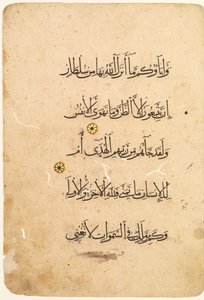 وَءَابَاؤُكُم مَّا أَنزَلَ اللَّهُ بِهَا مِن سُلْطَانٍ
إِن يَتَّبِعُونَ إِلَّا الظَّنَّ وَمَا تَهْوَى الْأَنفُسُ
وَلَقَدْ جَاءَهُم مِّن رَّبِّهِمُ الْهُدَى أَمْ
لِلْإِنسَانِ مَا تَمَنَّى فَلِلَّهِ الْآخِرَةُ وَالْأُولَى
وَكَم مِّن مَّلَكٍ فِي السَّمٰوَاتِ لَا تُغْنِي